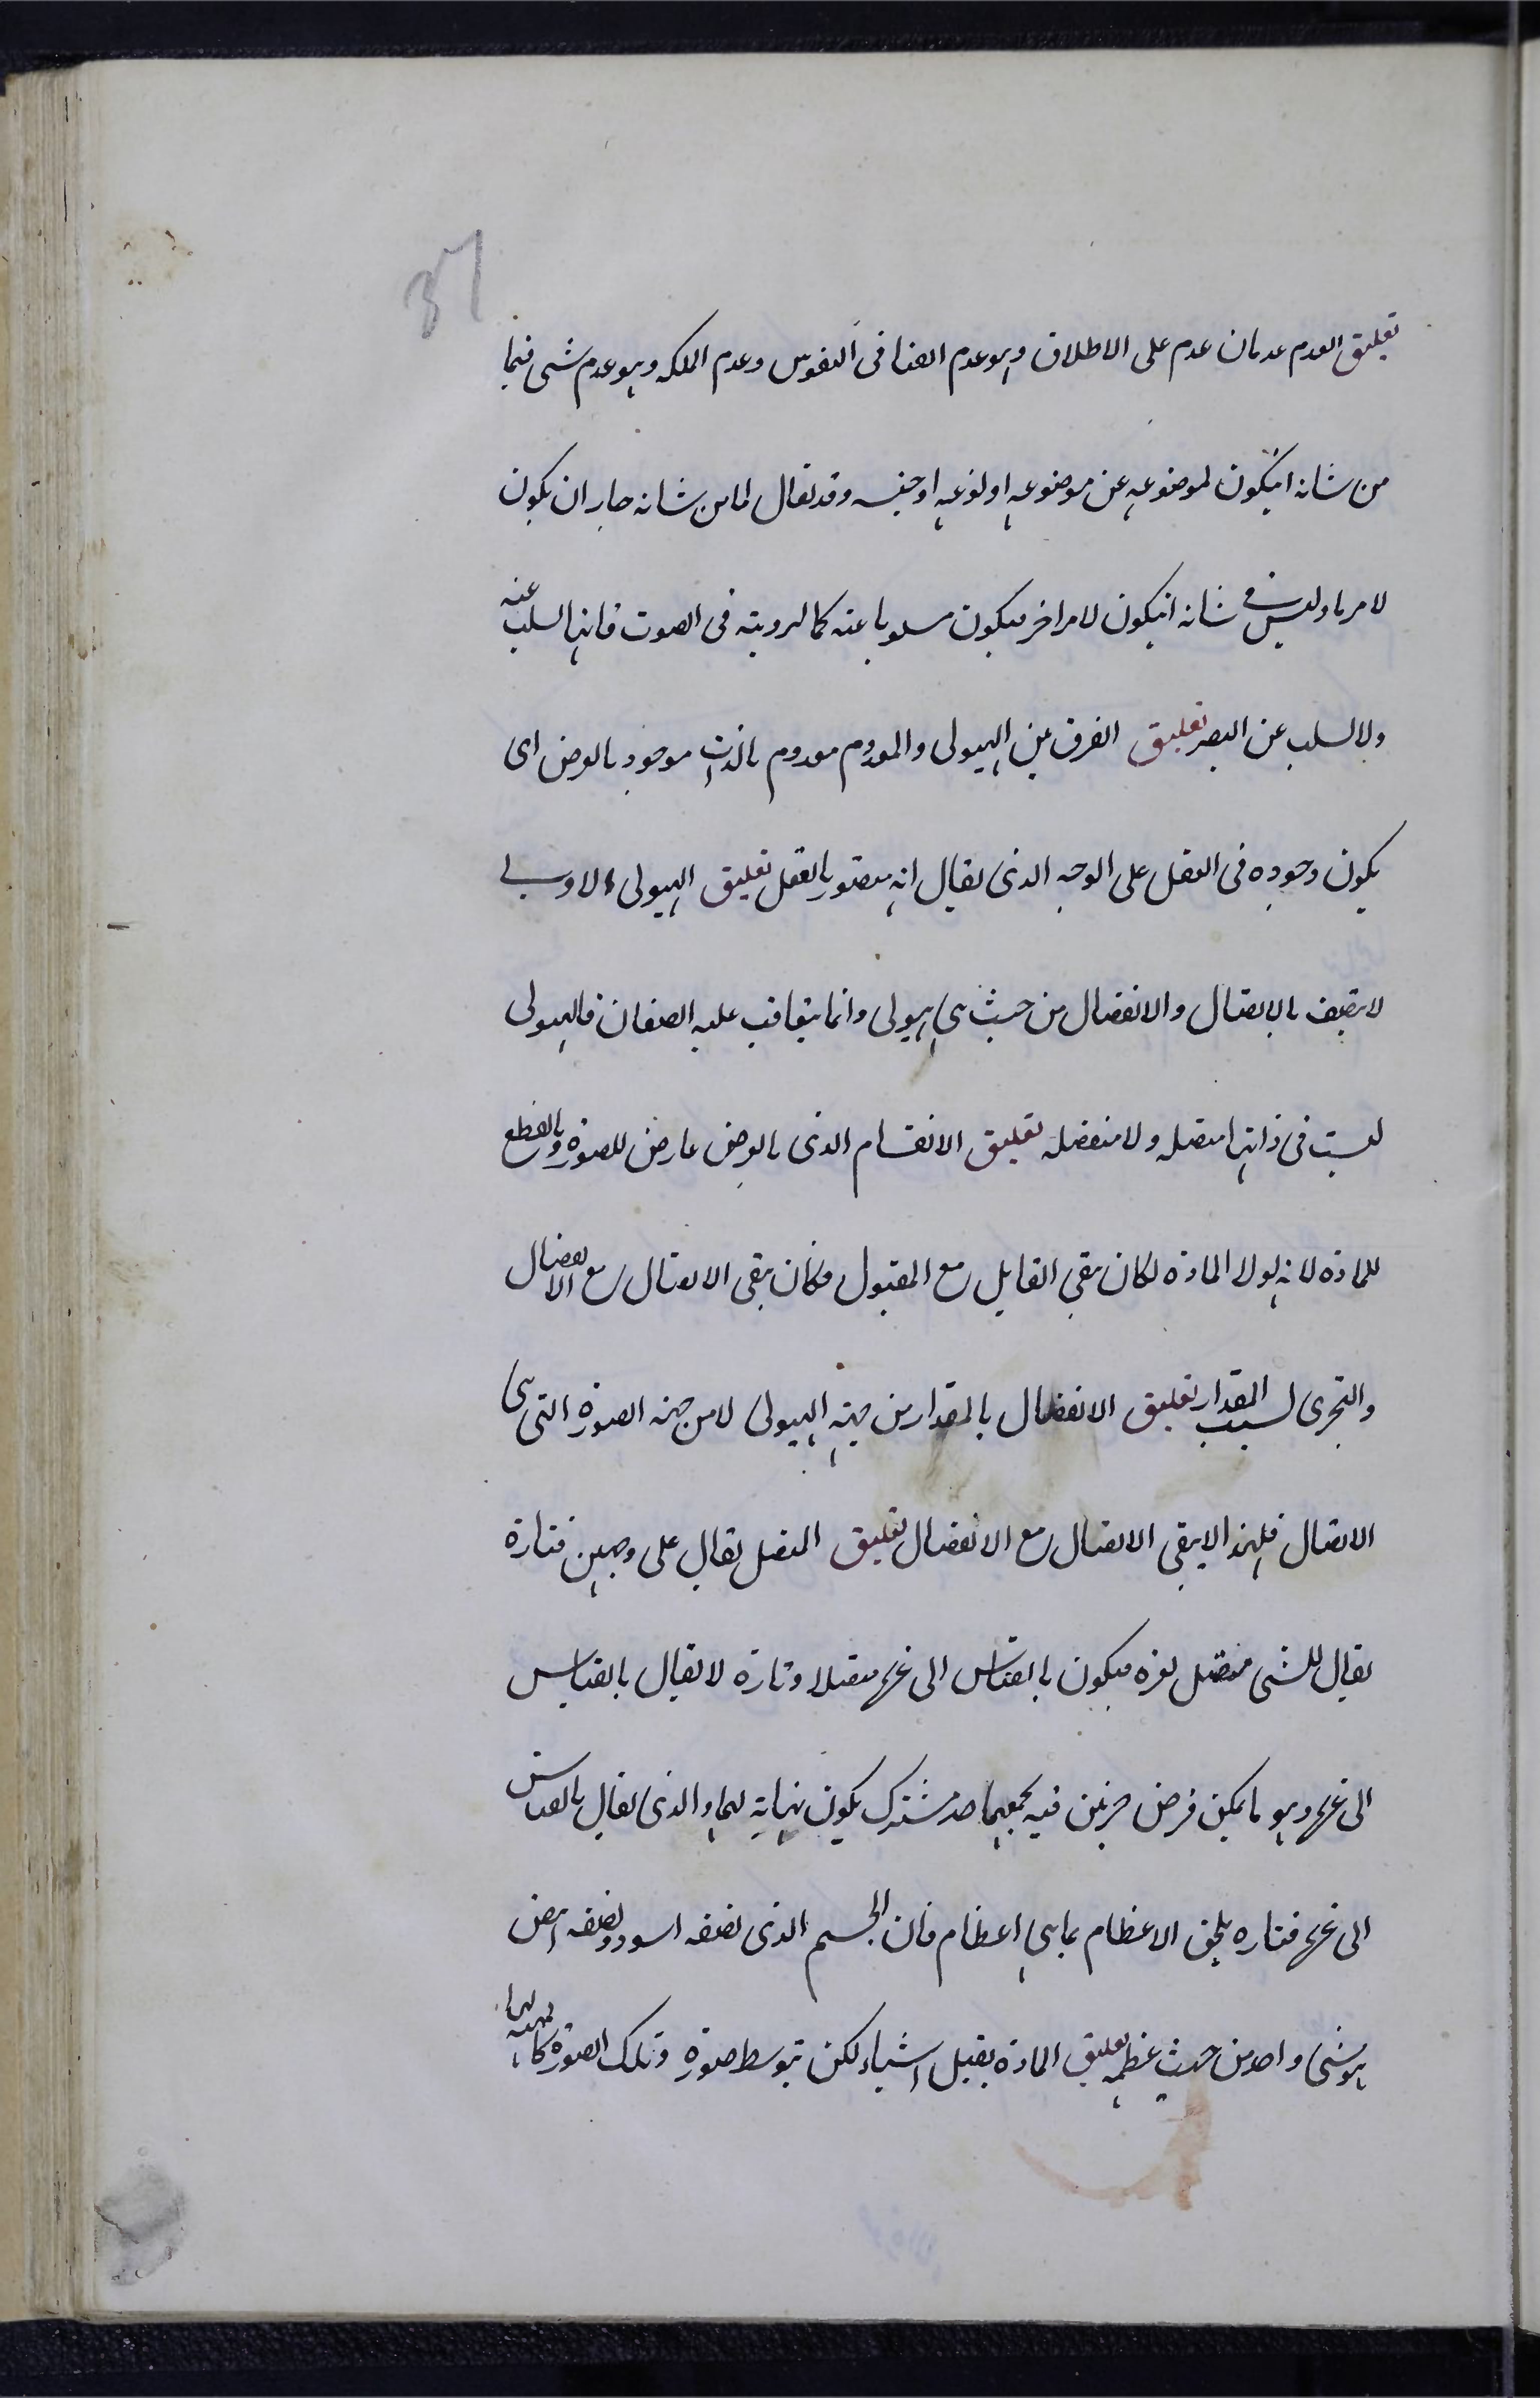 37
تعليق العدم عدمان عدم على الاطلاق وهو عدم الفنا فى النفوس وعدم الملكه وهو عدم شى فيما
من شانه انيكون لموضوعه عن موضوعه او لنوعه او جنسه وقد يقال لما من شانه جاز ان يكون
لامر ما وليس فى شانه انيكون لامر اخر فيكون مسلوبا عنه كالرويته فى الصوت فانها السلب عنه
ولا لسلب عن البصر تعليق الفرق بين الهيولى والمعدوم معدوم بالذات موجود بالعرض اى
يكون وجوده فى العقل على الوجه الذى يقال انه متصور بالعقل تعليق الهيولى الاولى
لا يتصف بالاتصال والانفصال من حيث هى هيولى وانما يتعاقب عليه الصفان فالهيولى
ليست فى ذاتها متصله ولا منفصله تعليق الانقسام الذى بالعرض عارض للصورة وبالقطع
للمادة لانه لولا المادة لكان بقى القابل مع المقبول فكان بقى الاتصال مع الانفصال
والتجزى لسبب المقدار تعليق الانفصال بالمقدار من جهة الهيولى لا من جهة الصورة التى هى
الاتصال فلهذا لا يبقى الاتصال مع الانفصال تعليق المتصل يقال على وجهين فتارة
يقال للشى متصل لغيره فيكون بالقياس الى غيره متصلا وتارة لا يقال بالقياس
الى غيره وهو ما يمكن فرض جزئين فيه يجمعهما حد مشترك يكون نهاية لهما والذى يقال بالقياس
الى غيره فتاره يلحق الاعظام بما هى اعظام فان الجسم الذى نصفه اسود ونصفه ابيض
هو شى واحد من حيث عظمه تعليق المادة يقبل اشياء لكن بتوسط صورة وتلك الصورة كالمهيه لها